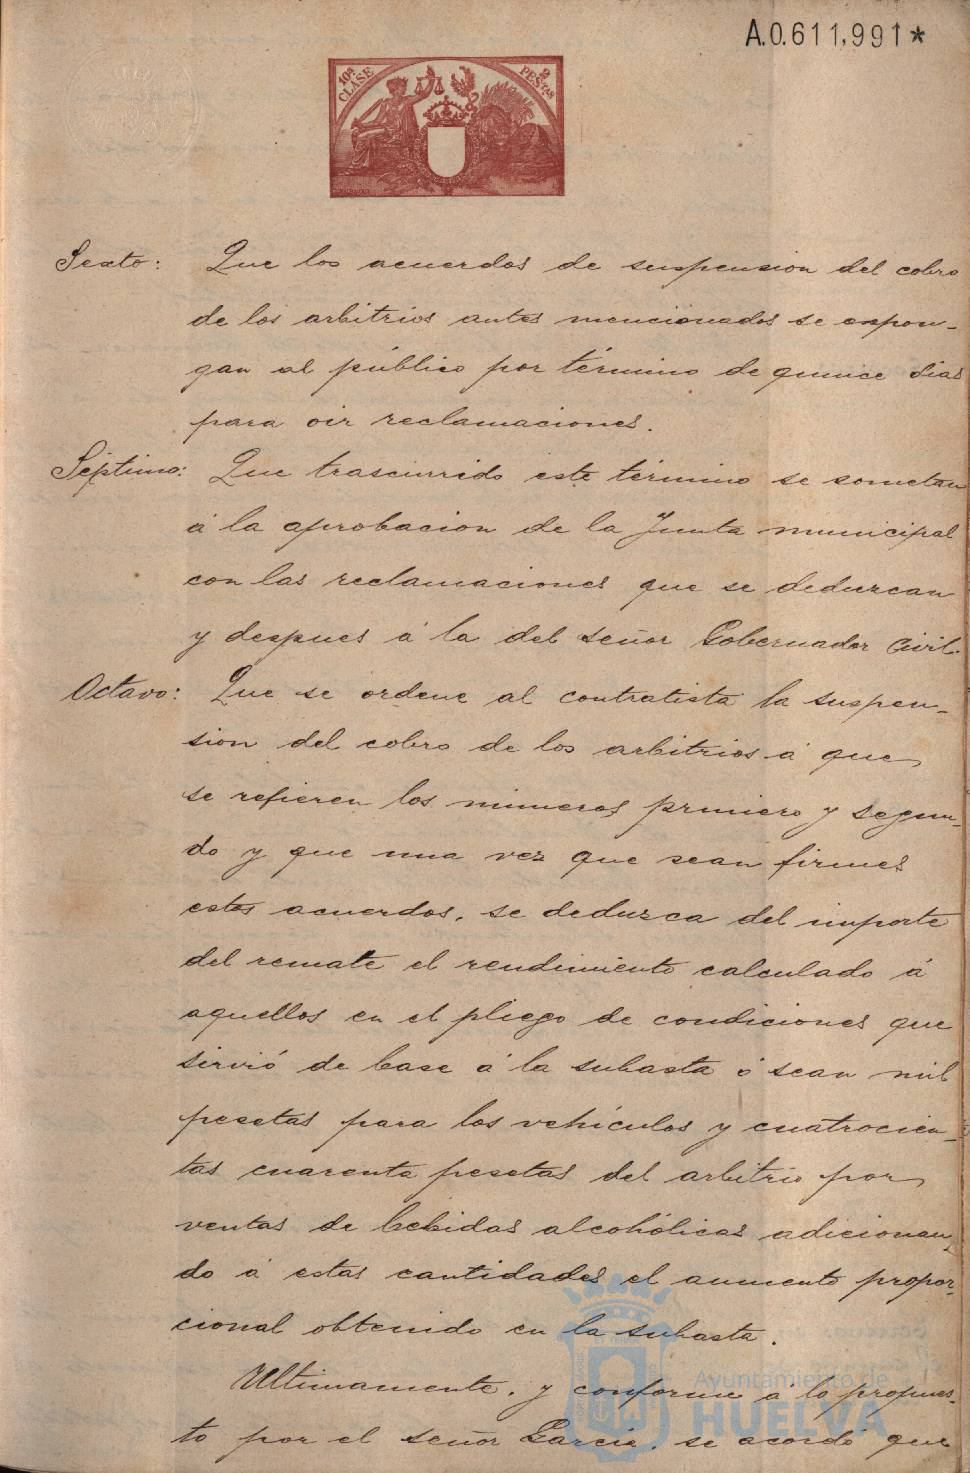 A.0.611,991*
10ª CLASE
2 PESETAS
Sexto: Que los acuerdos de suspension del cobro
de los arbitrios antes mencionados se expon-
gan al público por término de quince dias
para oir reclamaciones.
Séptimo: Que trascurrido este término se sometan
á la aprobacion de la Junta municipal
con las reclamaciones que se deduzcan
y despues á la del señor Gobernador Civil.
Octavo: Que se ordene al contratista la suspen-
sion del cobro de los arbitrios á que
se refieren los números primero y segun-
do y que una vez que sean firmes
estos acuerdos, se deduzca del importe
del remate el rendimiento calculado á
aquellos en el pliego de condiciones que
sirvió de base á la subasta ó sean mil
pesetas para los vehículos y cuatrocien-
tas cuarenta pesetas del arbitrio por
ventas de bebidas alcohólicas adicionan-
do á estas cantidades el aumento propor-
cional obtenido en la subasta.
Ultimamente, y conforme á lo propues-
to por el señor García, se acordó que
Ayuntamiento de
HUELVA